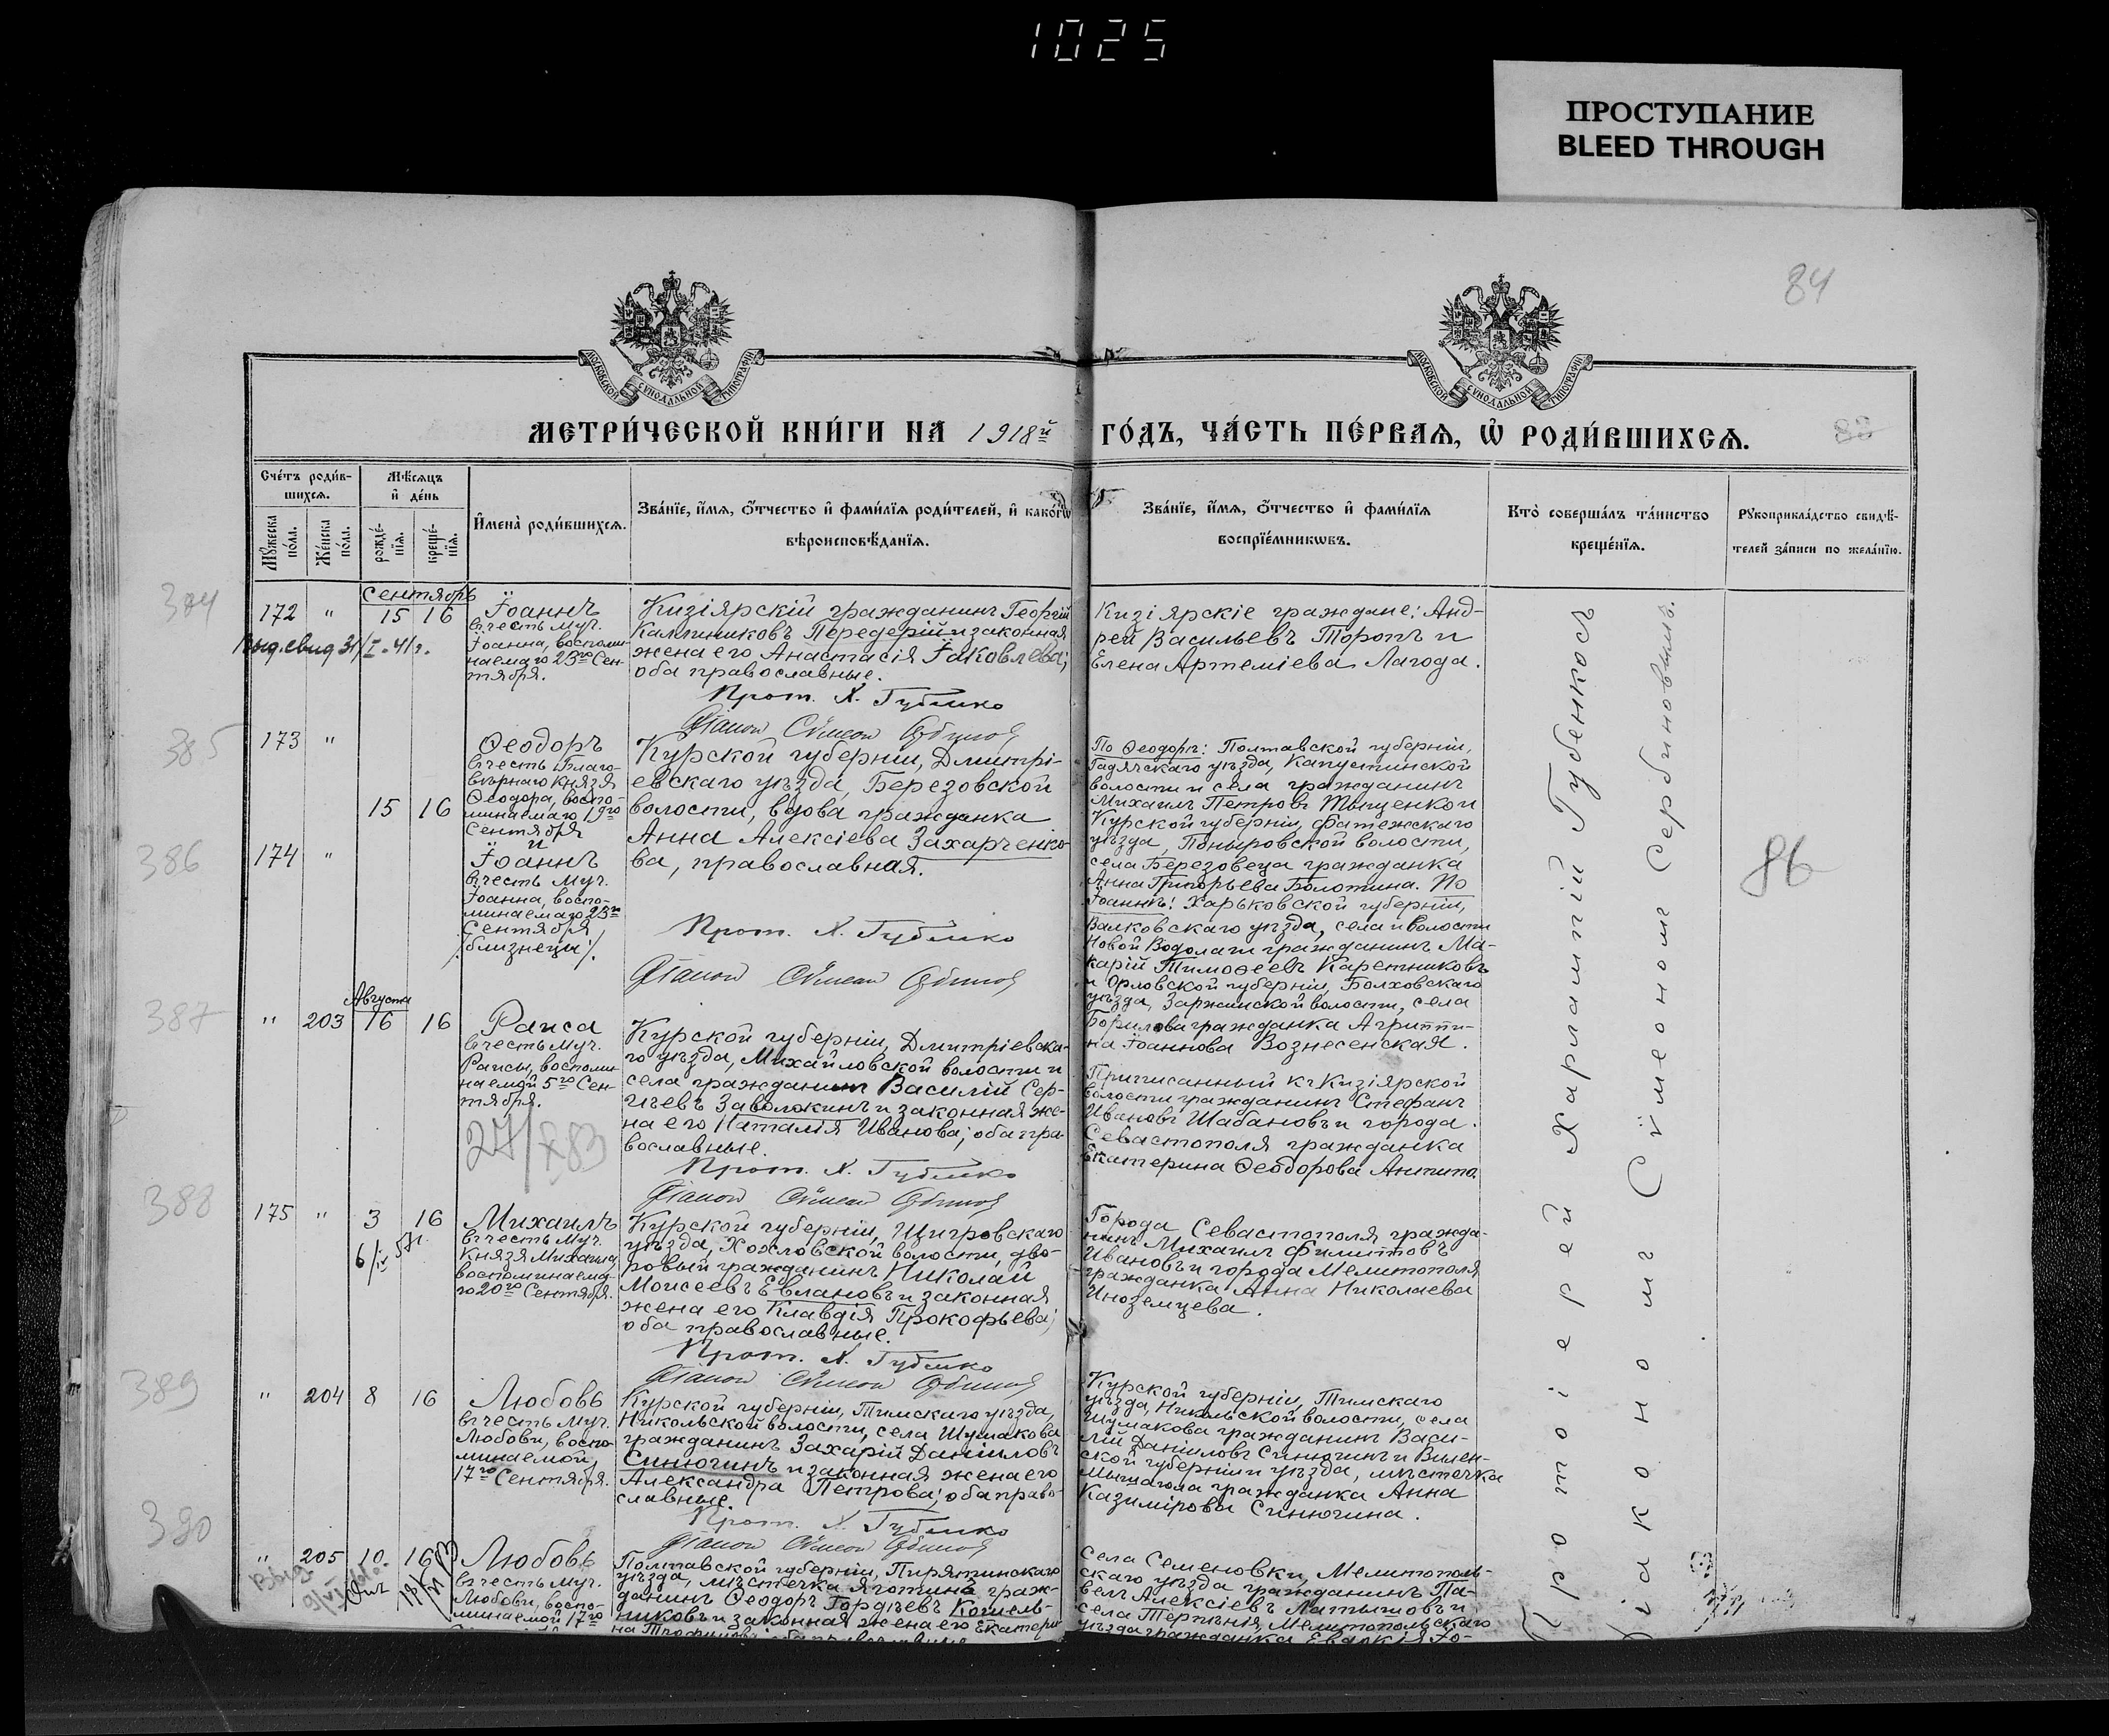 1025
ПРОСТУПАНИЕ
BLEED THROUGH
84
МОСКОВСКОЙ СУНОДАЛЬНОЙ ТИПОГРАФІИ
МОСКОВСКОЙ СУНОДАЛЬНОЙ ТИПОГРАФІИ
МЕТРИ́ЧЕСКОЙ КНИ́ГИ НА 1918й ГО́ДЪ, ЧА́СТЬ ПЕ́РВАѦ, Ѽ РОДИ́ВШИХСѦ.
83
Сче́тъ роди́в-
шихсѧ.
Мꙋжеска по́ла.
Же́нска по́ла.
Мѣ́сѧцъ
и҆ де́нь
рожде́-
нїѧ.
креще́-
нїѧ.
И҆мена̀ роди́вшихсѧ.
Зва́нїе, и҆́мѧ, ѻ҆́тчество и҆ фами́лїѧ роди́телей, и҆ како́гѡ
вѣроисповѣ́данїѧ.
Зва́нїе, и҆́мѧ, ѻ҆́тчество и҆ фами́лїѧ
воспрїе́мникѡвъ.
Кто̀ соверша́лъ та́инство
креще́нїѧ.
Рꙋкоприкла́дство свидѣ́-
телей за́писи по жела́нїю.
384
Сентябрь
172 " 15 16
Выд. свид 31/I-41г.
Іоаннъ
въ честь Муч.
Іоанна, воспоми-
наемаго 23го Сен-
тября.
Кизіярскій гражданинъ Георгій
Каллиниковъ Передерій и законная
жена его Анастасія Іаковлева;
оба православные.
Прот. Х. Губенко
Діакон Сѵмеон
Кизіярскіе граждане: Анд-
рей Васильевъ Торопъ и
Елена Артеміева Лагода.
385
173 "
386
174 "
15 16
Ѳеодоръ
въ честь Благо-
вѣрнаго Князя
Ѳеодора, воспо-
минаемаго 19го
Сентября
и
Іоаннъ
въ честь Муч.
Іоанна, воспо-
минаемаго 23го
Сентября
/близнецы/.
Курской губерніи, Дмитрі-
евскаго уѣзда, Березовской
волости, вдова гражданка
Анна Алексіева Захарченко-
ва, православная.
Прот. Х. Губенко
Діакон Сѵмеон
По Ѳеодорѣ: Полтавской губерніи,
Гадячскаго уѣзда, Капустинской
волости и села гражданинъ
Михаилъ Петровъ Тыщенко и
Курской губерніи, Фатежскаго
уѣзда, Поныровской волости,
села Березовеца гражданка
Анна Григорьева Болотина. По
Іоаннѣ: Харьковской губерніи,
Валковскаго уѣзда, села и волости
Новой Водолаги гражданинъ Ма-
карій Тимоѳеевъ Каретниковъ
и Орловской губерніи, Болховскаго
уѣзда, волости, села
Борилова гражданка Агриппи-
на Іоаннова Вознесенская.
86
387
Августа
" 203 16 16
Раиса
въ честь Муч.
Раисы, воспоми-
наемой 5го Сен-
тября.
Курской губерніи, Дмитріевска-
го уѣзда, Михайловской волости и
села гражданинъ Василій Сер-
гіевъ Заволокинъ и законная же-
на его Наталія Иванова; оба пра-
вославные.
Прот. Х. Губенко
Діакон Сѵмеон
Приписанный къ Кизіярской
волости гражданинъ Стефанъ
Ивановъ Шабановъ и города
Севастополя гражданка
Екатерина Ѳеодорова
388
175 " 3 16
Михаилъ
въ честь Муч.
Князя Михаила,
воспоминаема-
го 20го Сентября.
Курской губерніи, Щигровскаго
уѣзда, Хохловской волости, дво-
ровый гражданинъ Николай
Моисеевъ Евлановъ и законная
жена его Клавдія Прокофьева;
оба православные.
Прот. Х. Губенко
Діакон Сѵмеон
Города Севастополя гражда-
нинъ Михаилъ Филипповъ
Ивановъ и города Мелитополя
гражданка Анна Николаева
Иноземцева.
389
" 204 8 16
Любовь
въ честь Муч.
Любови, воспо-
минаемой
17го Сентября.
Курской губерніи, Тимскаго уѣзда,
Никольской волости, села Шумакова
гражданинъ Захарій Даніиловъ
Синючинъ и законная жена его
Александра Петрова; оба право-
славные.
Прот. Х. Губенко
Діакон Сѵмеон
Курской губерніи, Тимскаго
уѣзда, Никольской волости, села
Шумакова гражданинъ Васи-
лій Даніиловъ Синючинъ и Вилен-
ской губерніи и уѣзда, мѣстечка
гражданка Анна
Казимірова Синючина.
390
" 205 10 16
Любовь
въ честь Муч.
Любови, воспо-
минаемой 17го
Полтавской губерніи, Пирятинскаго
уѣзда, мѣстечка Яготина граж-
данинъ Ѳеодоръ Гордѣевъ Кошель-
никовъ и законная жена его Екатери-
Села Семеновки, Мелитополь-
скаго уѣзда гражданинъ Па-
велъ Алексіевъ Латышовъ и
села Терпѣнія, Мелитопольскаго
уѣзда гражданка Евдокія
Протоіерей Харлампій Губенко съ
Діакономъ Сѵмеономъ Сербиновымъ.